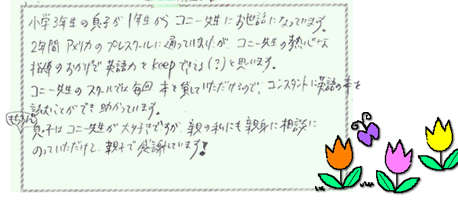 小学3年生の息子が1年生からコニー先生にお世話になっています。
2年間アメリカのプレスクールに通っていましたが、コニー先生の熱心な
指導のおかげで英語力をkeepできてる(?)と思います。
コニー先生のスクールでは毎回本を貸していただけるので、コンスタントに英語の本を
読むことができ助かっています。
もちろん
息子はコニー先生が大好きですが、親の私にも親身に相談に
のっていただけて、親子で感謝しています!